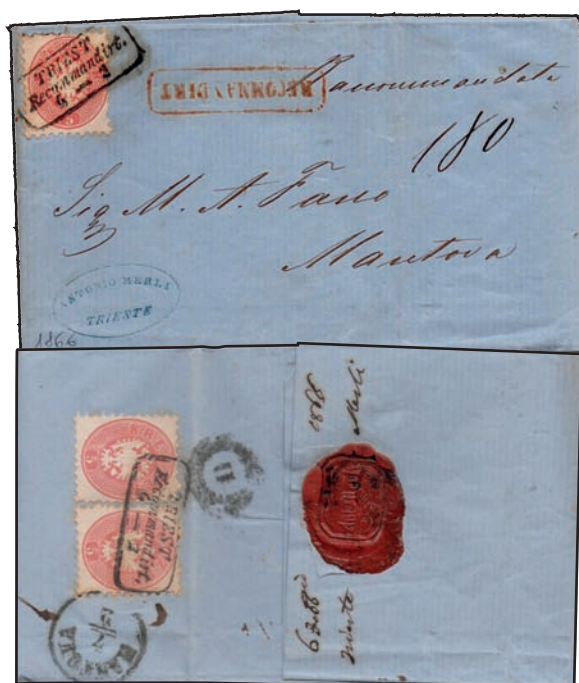 TRIEST
Recommandirt.
RECOMMANDIRT
Raccommandata
180
Sig M. A. Fano
Mantova
ANTONIO MERLI
TRIESTE
1866
5 KREU
TRIEST
Recommandirt.
11
MANTOVA
Merli
Trieste